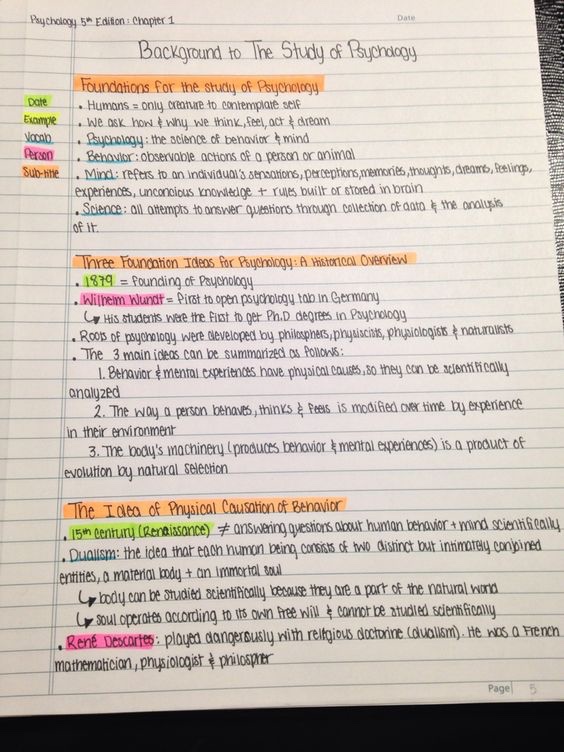 Psychology 5th Edition: Chapter 1
Date
Background to The Study of Psychology
Foundations for the study of Psychology
Date
• Humans = only creature to contemplate self
Example
• We ask how & why we think, feel, act & dream
Vocab
• Psychology: the science of behavior & mind
Person
• Behavior: observable actions of a person or animal
Sub-title
• Mind: refers to an individual's sensations, perceptions, memories, thoughts, dreams, feelings,
experiences, unconcious knowledge + rules built or stored in brain
• Science: all attempts to answer questions through collection of data & the analysis
of it.
Three Foundation Ideas for Psychology: A Historical Overview
• 1879 = founding of Psychology
• Wilhelm Wundt = first to open psychology lab in Germany
↳ His students were the first to get Ph.D degrees in Psychology
• Roots of psychology were developed by philosphers, physiscists, physiologists & naturalists
• The 3 main ideas can be summarized as follows:
1. Behavior & mental experiences have physical causes, so they can be scientifically
analyzed
2. The way a person behaves, thinks & feels is modified over time by experience
in their environment
3. The body's machinery (produces behavior & mental experiences) is a product of
evolution by natural selection
The Idea of Physical Causation of Behavior
• 15th century (Renaissance) ≠ answering questions about human behavior + mind scientifically
• Dualism: the idea that each human being consists of two distinct but intimately conjoined
entities, a material body + an immortal soul
↳ body can be studied scientifically because they are a part of the natural world
↳ soul operates according to its own free will & cannot be studied scientifically
• René Descartes: played dangerously with religious doctorine (dualism). He was a French
mathematician, physiologist & philospher
Page 5